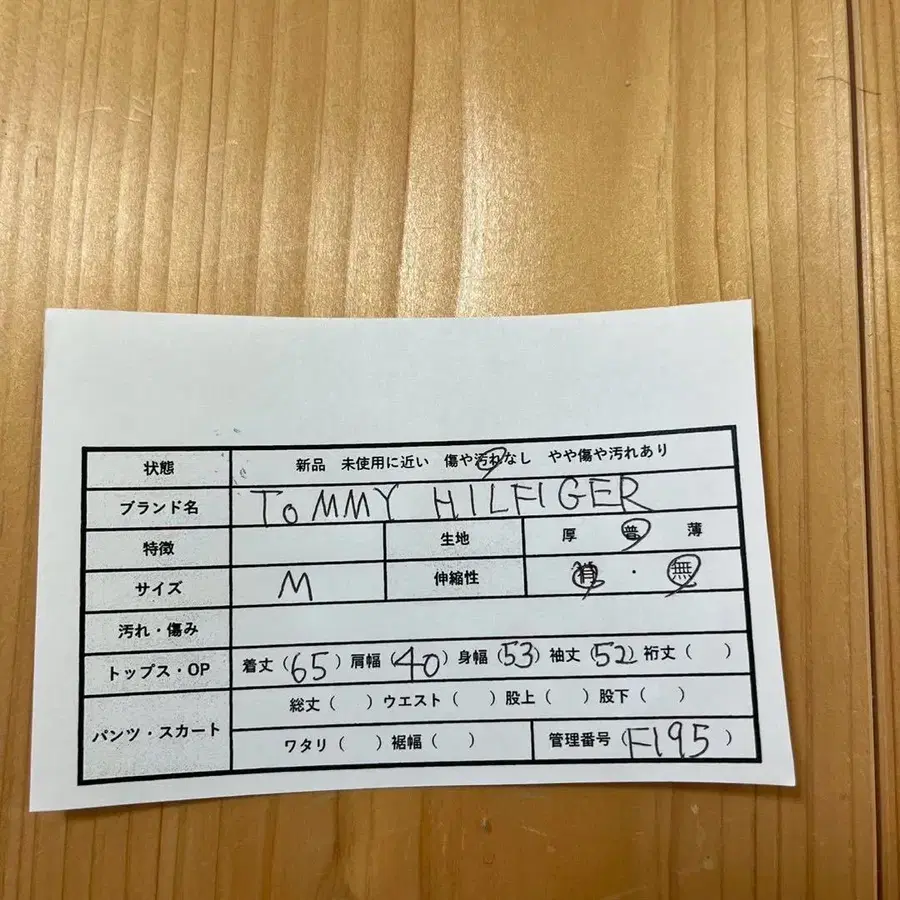 状態 新品 未使用に近い 傷や汚れなし やや傷や汚れあり
ブランド名 TOMMY HILFIGER
特徴 生地 厚 普 薄
サイズ M 伸縮性 有 ・ 無
汚れ・傷み
トップス・OP 着丈(65) 肩幅(40) 身幅(53) 袖丈(52) 裄丈( )
パンツ・スカート 総丈( ) ウエスト( ) 股上( ) 股下( )
ワタリ( ) 裾幅( ) 管理番号(F195)